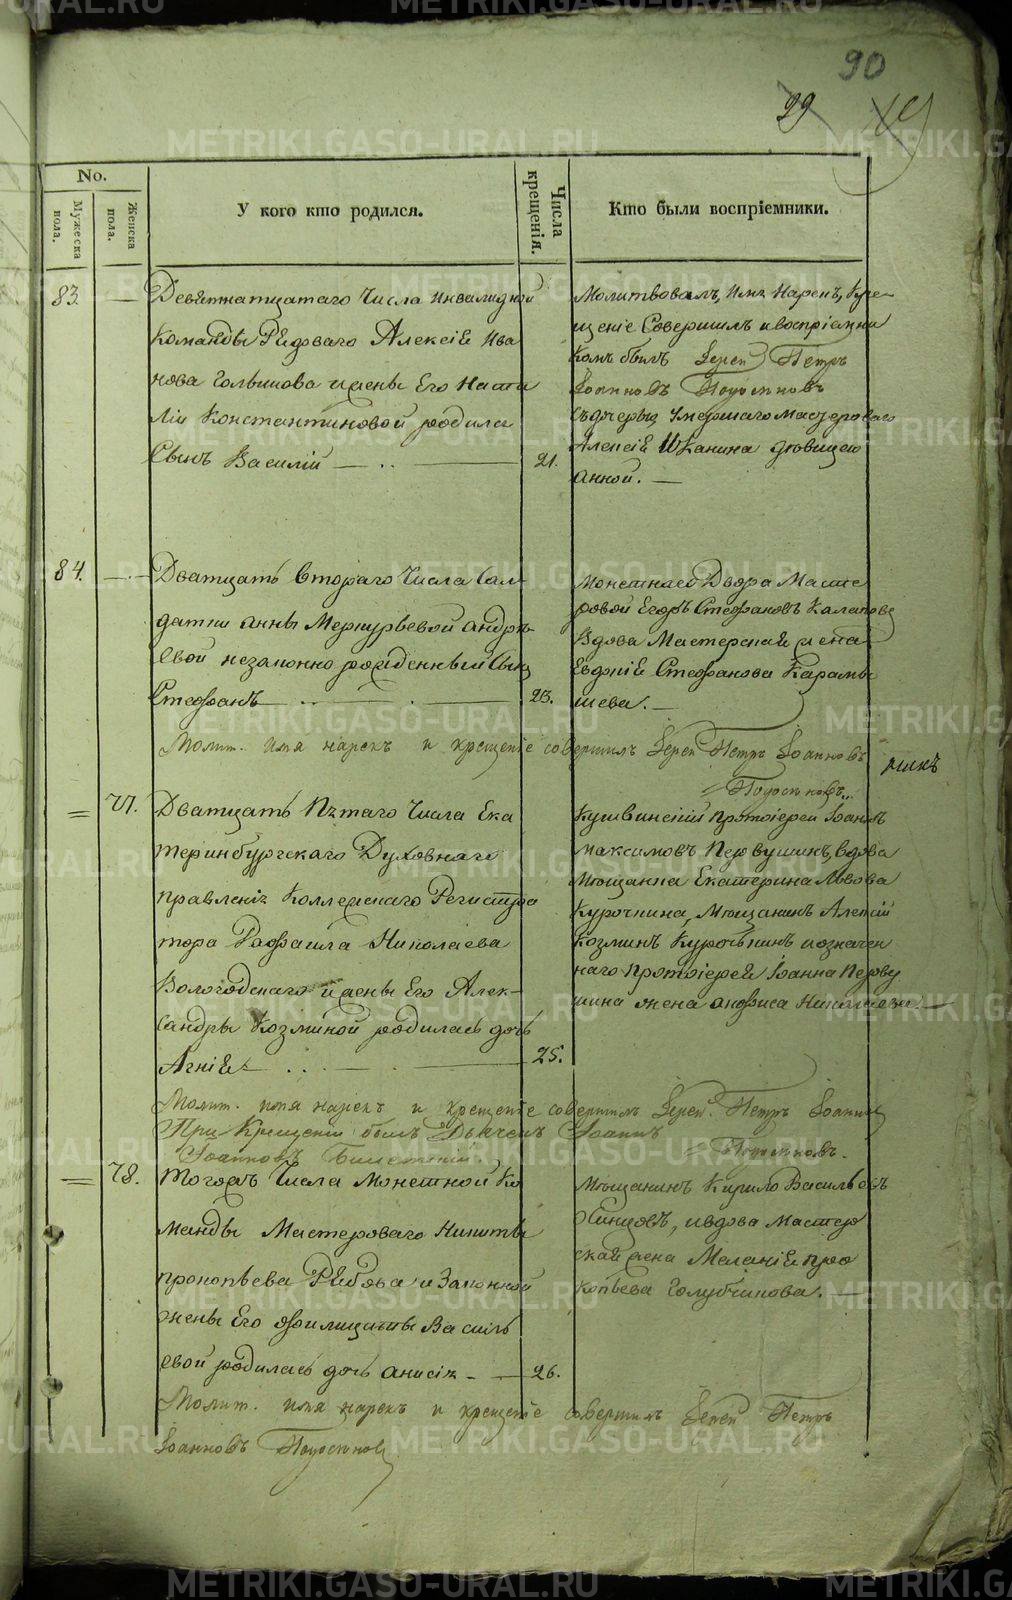 90
29
No.
Мужеска пола.
Женска пола.
У кого кто родился.
Числа крещенія.
Кто были воспріемники.
83.
Девятнатцатаго Числа инвалидной
Команды Рядоваго Алексія Ива
нова Голышова и жены Его Ната
ліи Константиновой родился
Сынъ Василій
21.
Молитвовалъ, Имя Нарекъ, Кре-
щеніе Совершилъ и воспріемни
комъ былъ Іерей Петръ
Іоанновъ
съ дчерью Умершаго Мастероваго
Алексія Шканина девицею
Анной.
84.
Дватцать втораго Числа Сол-
датки Анны Меркурьевой Андре-
евой незаконно рожденный Сынъ
Стефанъ
23.
Монетнаго Двора Масте
ровой Егоръ Стефановъ
Вдова Мастерская жена
Стефанова Карамы
шева.
Молит. имя нарекъ и крещеніе совершилъ Іерей Петръ Іоанновъ
77.
Дватцать Пятаго Числа Ека
теринбургскаго Духовнаго
правленія Коллежскаго Регистра
тора Рафаила Николаева
Вологодскаго и жены Его Алек-
сандры Козминой родилась дочь
Агнія
25.
Кушвинскій протоіерей Іоаннъ
Максимовъ Первушинъ, вдова
Мещанка Екатерина Львова
Курочкина, Мещанинъ Алексій
Козминъ Курочкинъ и означен
наго Протоіерея Іоанна Перву
шина жена Анфиса Николаева.
Молит. имя нарекъ и крещеніе совершилъ Іерей Петръ Іоанновъ
При Крещеніи былъ Дьячекъ Іоаннъ
Іоанновъ
78.
Тогожъ Числа Монетной Ко
манды Мастероваго Никиты
Прокопьева Рябова и Законной
жены Его Филицаты Василь
евой родилась дочь Анисія
26.
Мещанинъ Кирило Васильевъ
и вдова Мастер
ская жена Меланія Про
копьева Голубчикова.
Молит. имя нарекъ и крещеніе совершилъ Іерей Петръ
Іоанновъ
METRIKI.GASO-URAL.RU